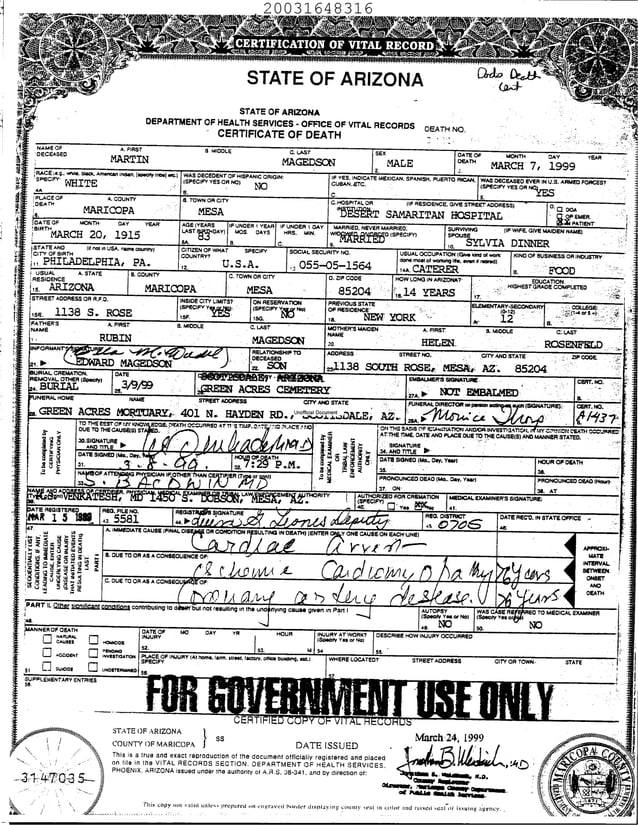 20031648316
CERTIFICATION OF VITAL RECORD
STATE OF ARIZONA
Dads Death Cert
STATE OF ARIZONA
DEPARTMENT OF HEALTH SERVICES - OFFICE OF VITAL RECORDS
CERTIFICATE OF DEATH DEATH NO.
NAME OF DECEASED A. FIRST B. MIDDLE C. LAST SEX DATE OF DEATH MONTH DAY YEAR
MARTIN MAGEDSON MALE MARCH 7, 1999
RACE SPECIFY WAS DECEDENT OF HISPANIC ORIGIN (SPECIFY YES OR NO) IF YES, INDICATE MEXICAN, SPANISH, PUERTO RICAN, CUBAN, ETC. WAS DECEASED EVER IN U.S. ARMED FORCES?
WHITE NO YES
PLACE OF DEATH A. COUNTY B. TOWN OR CITY C. HOSPITAL OR INSTITUTION (IF RESIDENCE, GIVE STREET ADDRESS) D. DOA OP EMER. PATIENT
MARICOPA MESA DESERT SAMARITAN HOSPITAL
DATE OF BIRTH MONTH DAY YEAR AGE (YEARS LAST BIRTHDAY) IF UNDER 1 YEAR MOS. DAYS IF UNDER 1 DAY HRS. MIN. MARRIED, NEVER MARRIED, WIDOWED, DIVORCED (SPECIFY) SURVIVING SPOUSE (IF WIFE, GIVE MAIDEN NAME)
MARCH 20, 1915 83 MARRIED SYLVIA DINNER
STATE AND CITY OF BIRTH (If not in USA, name country) CITIZEN OF WHAT COUNTRY? SPECIFY SOCIAL SECURITY NO. USUAL OCCUPATION KIND OF BUSINESS OR INDUSTRY
11. PHILADELPHIA, PA. 12. U.S.A. 13. 055-05-1564 14A. CATERER FOOD
USUAL RESIDENCE A. STATE B. COUNTY C. TOWN OR CITY D. ZIP CODE HOW LONG IN ARIZONA? EDUCATION HIGHEST GRADE COMPLETED
15. ARIZONA MARICOPA MESA 85204 16. 14 YEARS 17.
STREET ADDRESS OR R.F.D. INSIDE CITY LIMITS? ON RESERVATION (SPECIFY YES OR NO) PREVIOUS STATE OF RESIDENCE ELEMENTARY-SECONDARY (0-12) COLLEGE (1-4 or 5+)
15E. 1138 S. ROSE 15F. YES 15G. NO 18. NEW YORK 12
FATHER'S NAME A. FIRST B. MIDDLE C. LAST MOTHER'S MAIDEN NAME A. FIRST B. MIDDLE C. LAST
RUBIN MAGEDSON HELEN ROSENFELD
INFORMANT RELATIONSHIP TO DECEASED ADDRESS STREET NO. CITY AND STATE ZIP CODE
21. EDWARD MAGEDSON 22. SON 1138 SOUTH ROSE, MESA, AZ. 85204
BURIAL, CREMATION, REMOVAL, OTHER (Specify) DATE EMBALMER'S SIGNATURE CERT. NO.
24. BURIAL 3/9/99 SCOTTSDALE, ARIZONA GREEN ACRES CEMETERY 27A. NOT EMBALMED
FUNERAL HOME NAME STREET ADDRESS CITY AND STATE FUNERAL DIRECTOR (SIGNATURE) CERT. NO.
28. GREEN ACRES MORTUARY, 401 N. HAYDEN RD., SCOTTSDALE, AZ. Monica Thorp A1437
Unofficial Document
TO THE BEST OF MY KNOWLEDGE, DEATH OCCURRED AT THE TIME, DATE AND PLACE AND DUE TO THE CAUSE(S) STATED. ON THE BASIS OF EXAMINATION AND/OR INVESTIGATION, IN MY OPINION DEATH OCCURRED AT THE TIME, DATE AND PLACE DUE TO THE CAUSE(S) AND MANNER STATED.
30. SIGNATURE AND TITLE SIGNATURE 34. AND TITLE
DATE SIGNED (Mo., Day, Year) HOUR OF DEATH DATE SIGNED (Mo., Day, Year) HOUR OF DEATH
31. 3-8-99 32. 7:29 P.M.
NAME OF ATTENDING PHYSICIAN IF OTHER THAN CERTIFIER (Type or print) PRONOUNCED DEAD (Mo., Day, Year) PRONOUNCED DEAD (Hour)
33. S. BALDWIN 37. ON 38. AT
VENKATESH, MD 1450 S. DOBSON, MESA, AZ. AUTHORIZED FOR CREMATION (Specify) Yes No MEDICAL EXAMINER'S SIGNATURE
DATE REGISTERED REG. FILE NO. REGISTRAR'S SIGNATURE REG. DISTRICT DATE REC'D. IN STATE OFFICE
MAR 15 1999 5581 Deputy 45. 0705 46.
47. A. IMMEDIATE CAUSE (FINAL DISEASE OR CONDITION RESULTING IN DEATH) (ENTER ONLY ONE CAUSE ON EACH LINE)
Cardiac Arrest
B. DUE TO OR AS A CONSEQUENCE OF:
ischemic Cardiomyopathy Years
C. DUE TO OR AS A CONSEQUENCE OF:
Coronary artery disease. Years
SEQUENTIALLY LIST CONDITIONS, IF ANY, LEADING TO IMMEDIATE CAUSE. ENTER UNDERLYING CAUSE (DISEASE OR INJURY THAT INITIATED EVENTS RESULTING IN DEATH) LAST
PART I
APPROXIMATE INTERVAL BETWEEN ONSET AND DEATH
PART II. Other significant conditions contributing to death but not resulting in the underlying cause given in Part I AUTOPSY (Specify Yes or No) WAS CASE REFERRED TO MEDICAL EXAMINER (Specify Yes or No)
48. 49. NO 50. NO
MANNER OF DEATH DATE OF INJURY MO DAY YR HOUR INJURY AT WORK? (Specify Yes or No) DESCRIBE HOW INJURY OCCURRED
NATURAL CAUSES HOMICIDE 52. 53. M 54. 55.
ACCIDENT PENDING INVESTIGATION PLACE OF INJURY (At home, farm, street, factory, office building, etc.) SPECIFY WHERE LOCATED? STREET ADDRESS CITY OR TOWN STATE
51. SUICIDE UNDETERMINED 56. 57.
SUPPLEMENTARY ENTRIES
58.
FOR GOVERNMENT USE ONLY
CERTIFIED COPY OF VITAL RECORDS
STATE OF ARIZONA
COUNTY OF MARICOPA } SS DATE ISSUED March 24, 1999
This is a true and exact reproduction of the document officially registered and placed
on file in the VITAL RECORDS SECTION, DEPARTMENT OF HEALTH SERVICES,
PHOENIX, ARIZONA issued under the authority of A.R.S. 36-341, and by direction of:
Jonathan B. Weisbuch, M.D.
County Registrar
Director, Maricopa County Department
of Public Health Services
3147035
MARICOPA COUNTY
This copy not valid unless prepared on engraved border displaying county seal in color and raised seal of issuing agency.